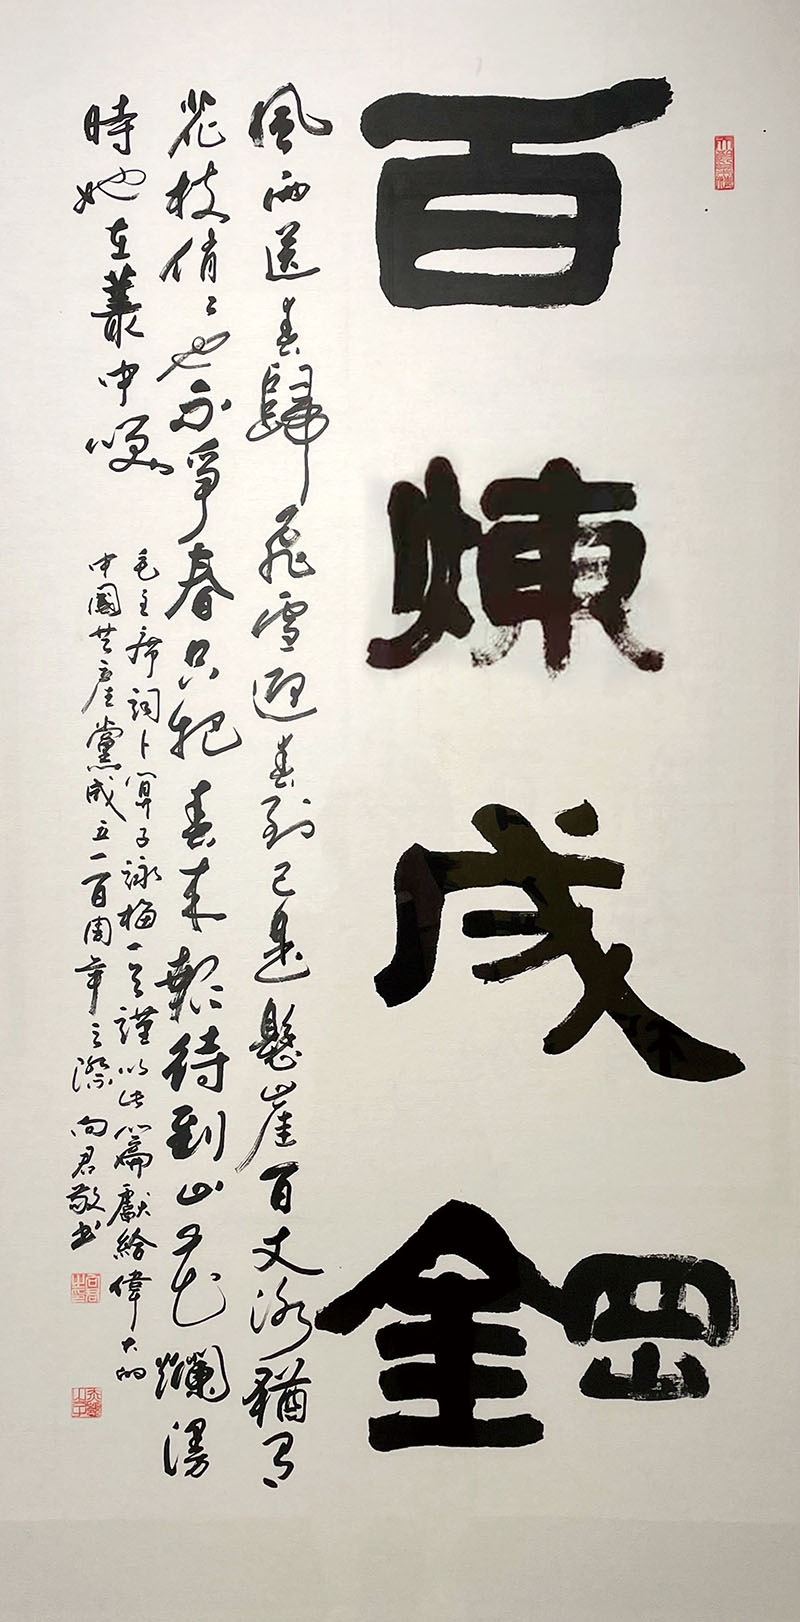 百煉成鋼
風雨送春歸飛雪迎春到已是懸崖百丈冰猶有
花枝俏俏也不爭春只把春來報待到山花爛漫
時她在叢中笑
毛主席詞卜算子詠梅一首謹以此篇獻給偉大的
中國共產黨成立一百周年之際向君敬書